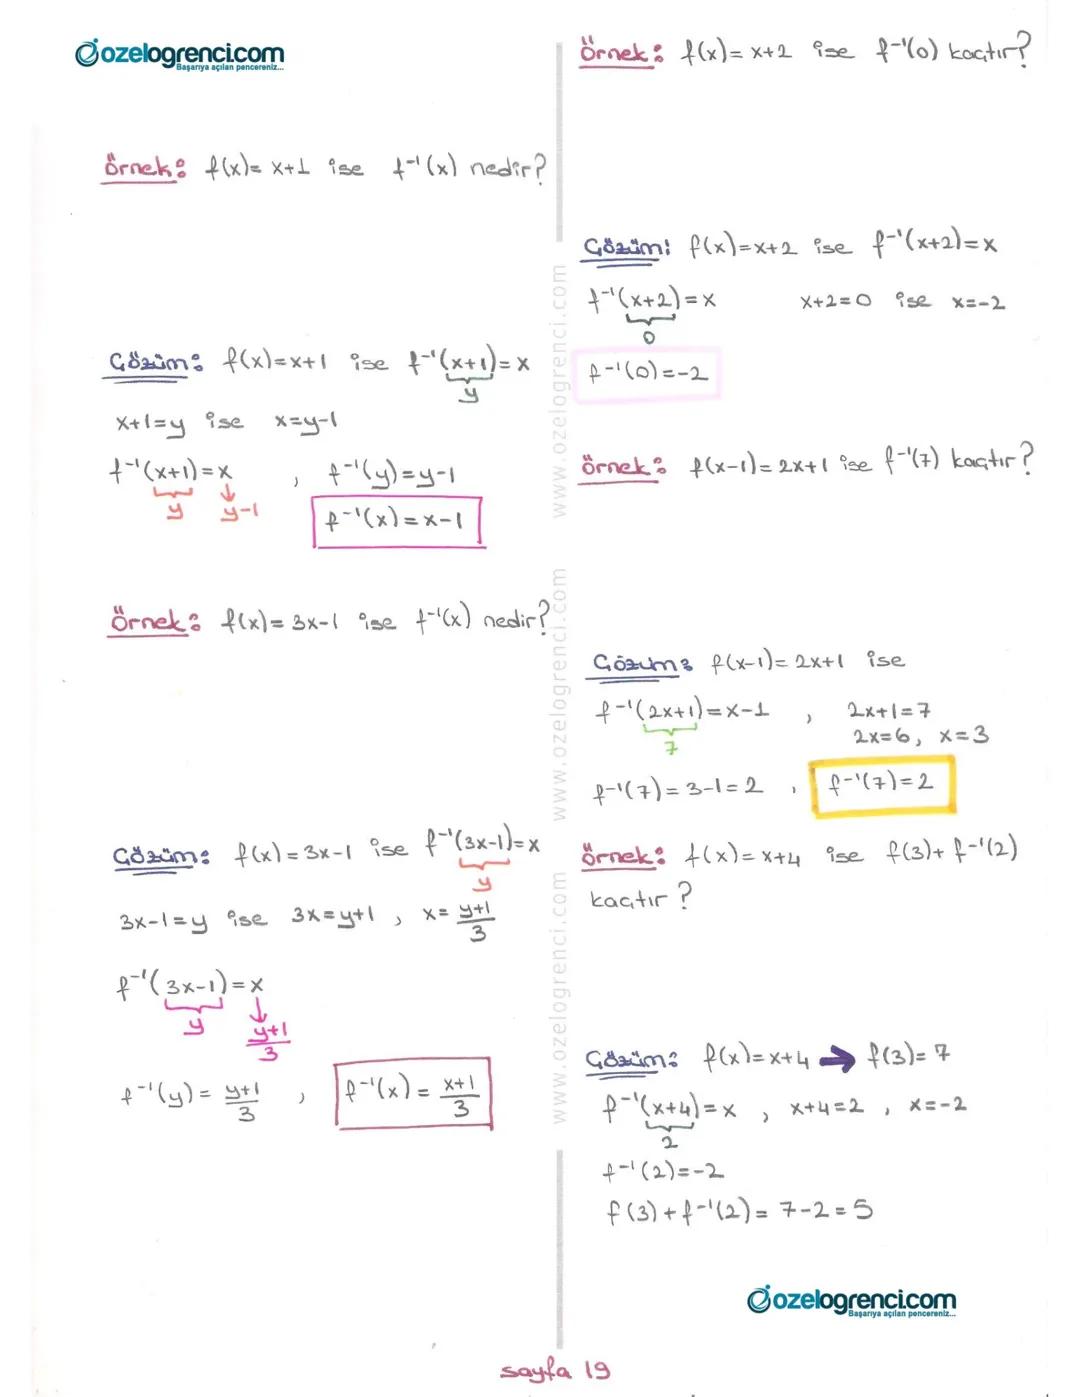 ozelogrenci.com
Başarıya açılan pencereniz...
Örnek: f(x)= x+1 ise f⁻¹(x) nedir?
Çözüm: f(x)=x+1 ise f⁻¹(x+1)=x
y
x+1=y ise x=y-1
f⁻¹(x+1)=x , f⁻¹(y)=y-1
y y-1
f⁻¹(x)=x-1
Örnek: f(x)= 3x-1 ise f⁻¹(x) nedir?
Çözüm: f(x)=3x-1 ise f⁻¹(3x-1)=x
y
3x-1=y ise 3x=y+1 , x= (y+1)/3
f⁻¹(3x-1)=x
y (y+1)/3
f⁻¹(y)= (y+1)/3 , f⁻¹(x)= (x+1)/3
www.ozelogrenci.com www.ozelogrenci.com www.ozelogrenci.com
Örnek: f(x)= x+2 ise f⁻¹(0) kaçtır?
Çözüm: f(x)=x+2 ise f⁻¹(x+2)=x
f⁻¹(x+2)=x x+2=0 ise x=-2
0
f⁻¹(0)=-2
Örnek: f(x-1)= 2x+1 ise f⁻¹(7) kaçtır?
Çözüm: f(x-1)= 2x+1 ise
f⁻¹(2x+1)=x-1 , 2x+1=7
7
2x=6, x=3
f⁻¹(7)= 3-1=2 , f⁻¹(7)=2
Örnek: f(x)= x+4 ise f(3)+ f⁻¹(2)
kaçtır?
Çözüm: f(x)=x+4 → f(3)= 7
f⁻¹(x+4)=x , x+4=2 , x=-2
2
f⁻¹(2)=-2
f(3)+f⁻¹(2)= 7-2=5
ozelogrenci.com
Başarıya açılan pencereniz...
sayfa 19